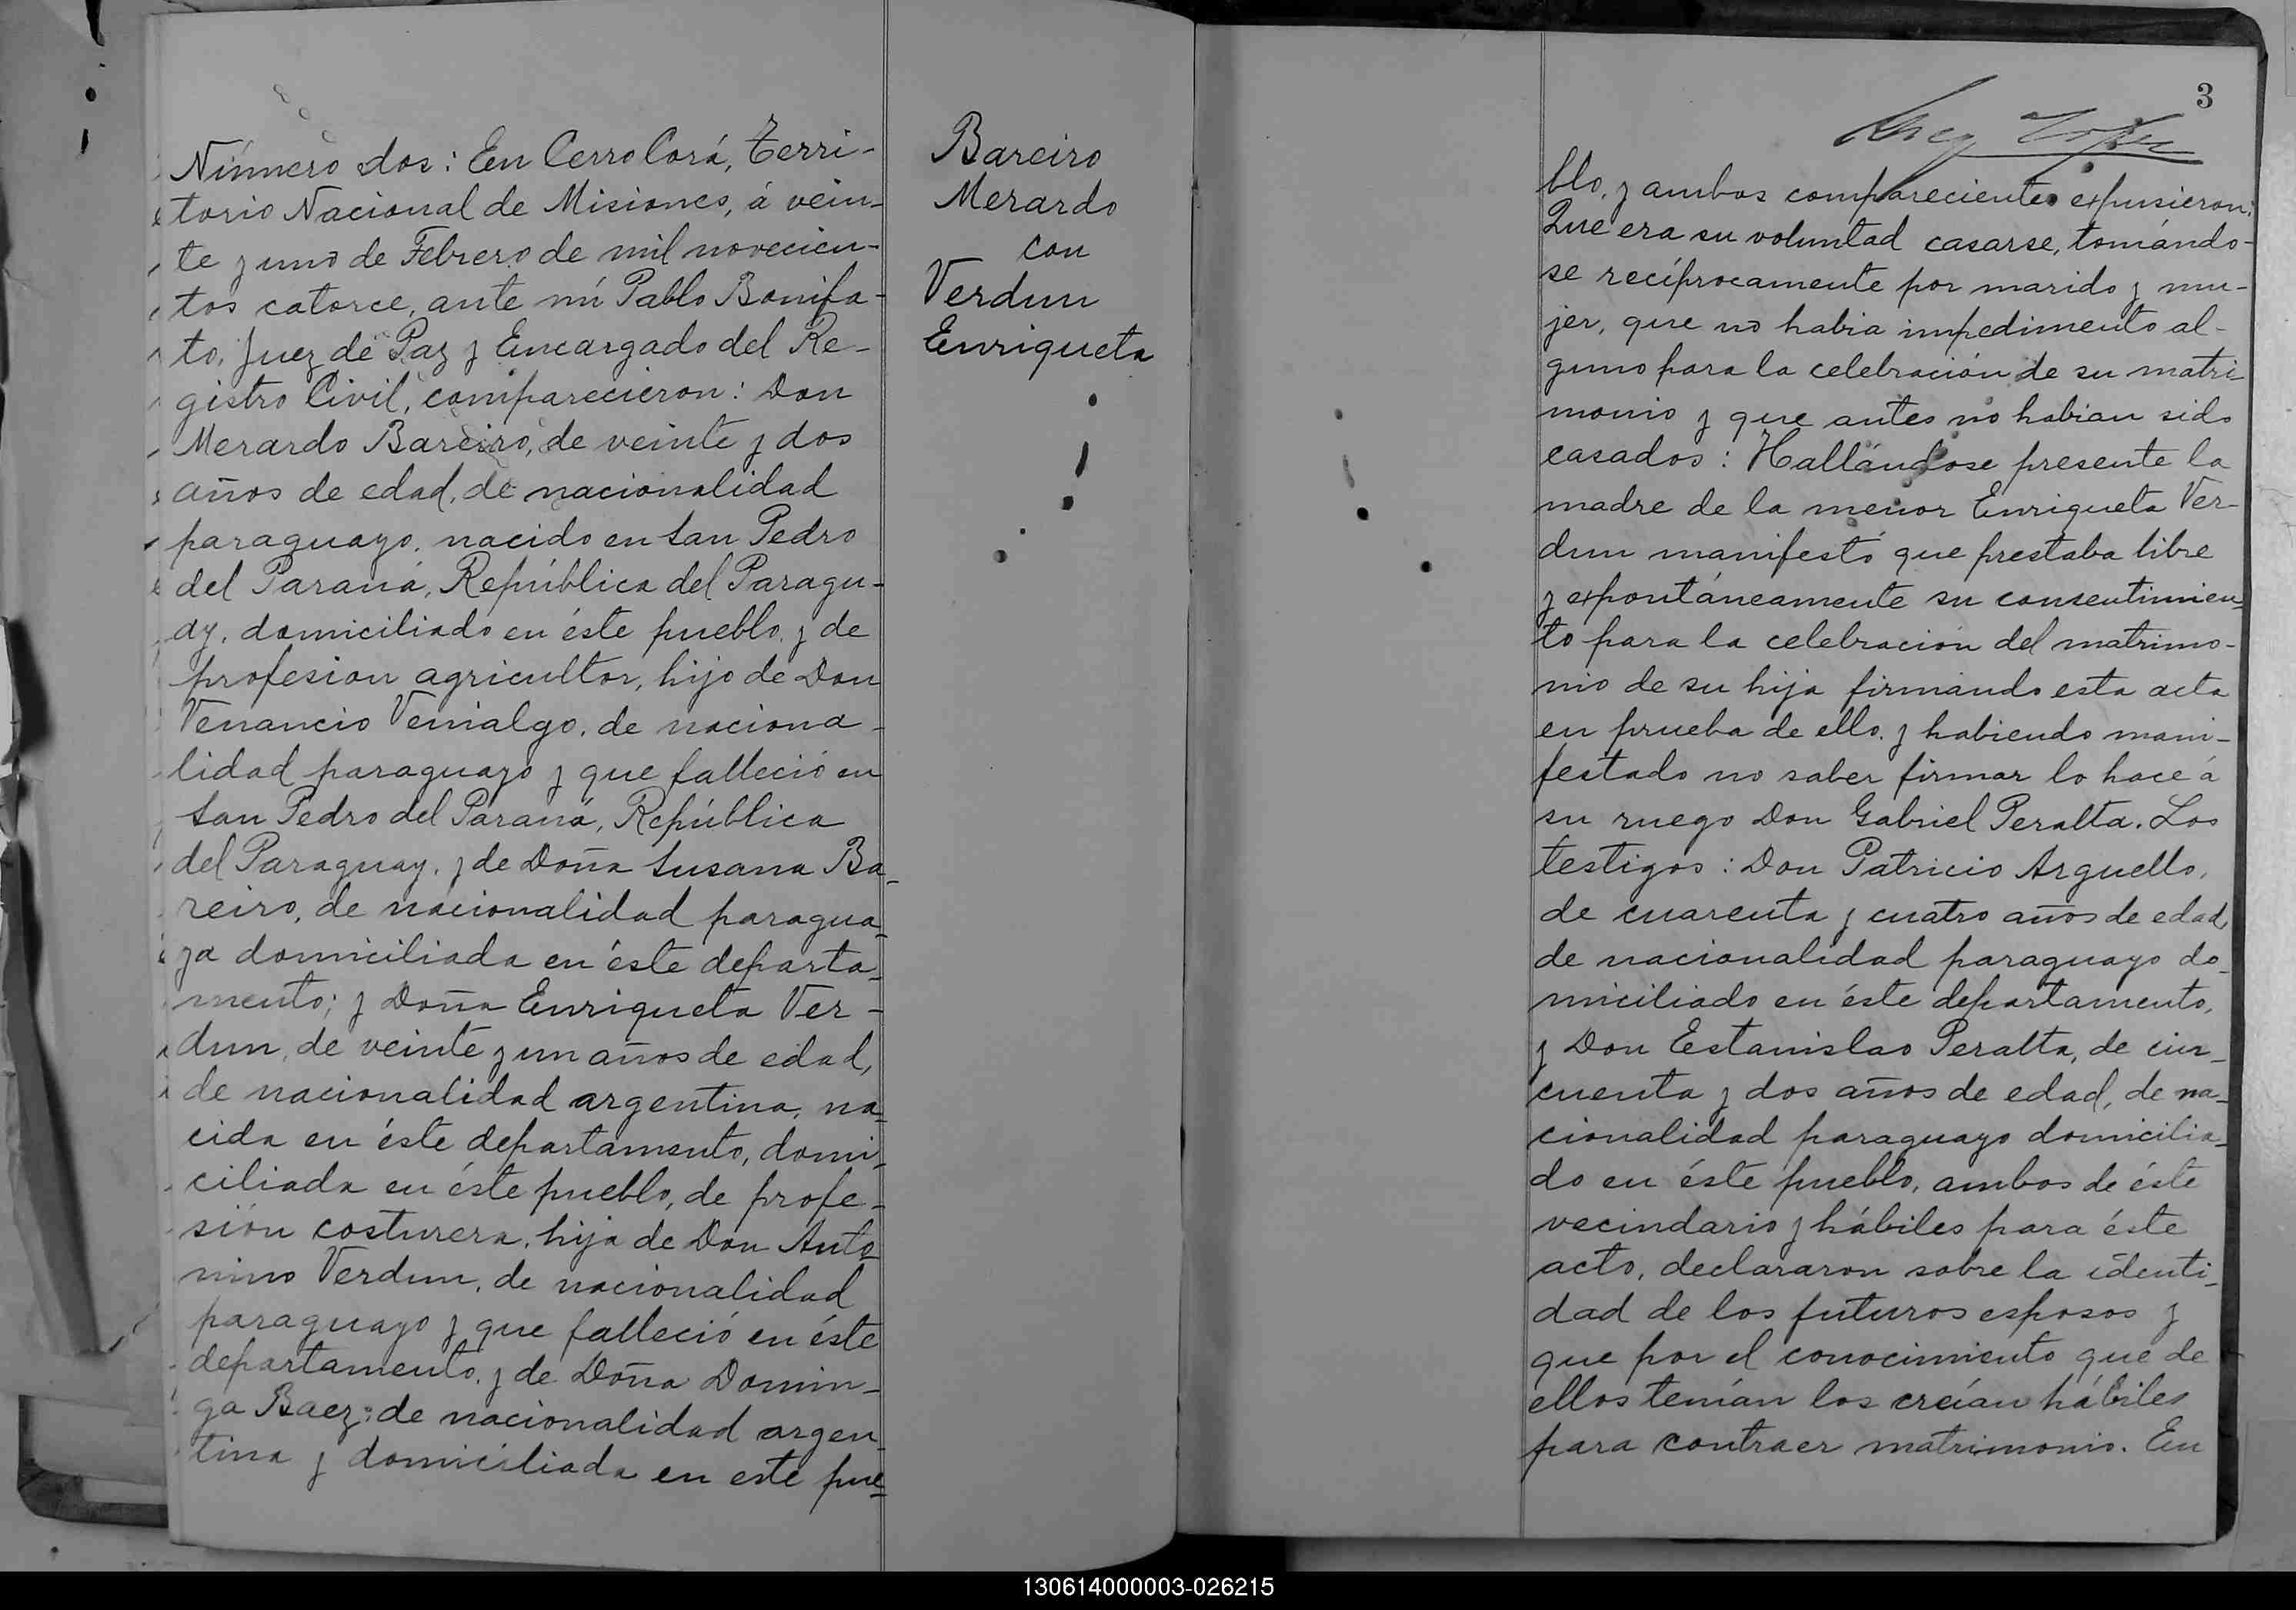 Número dos: En Cerro Corá, Terri-
torio Nacional de Misiones, á vein-
te y uno de Febrero de mil novecien-
tos catorce, ante mí Pablo Bonifa-
to, Juez de Paz y Encargado del Re-
gistro Civil, comparecieron: Don
Merardo Bareiro, de veinte y dos
años de edad, de nacionalidad
paraguayo, nacido en San Pedro
del Paraná, República del Paragu-
ay, domiciliado en éste pueblo, y de
profesion agricultor, hijo de Don
Venancio Venialgo, de naciona-
lidad paraguayo y que falleció en
San Pedro del Paraná, República
del Paraguay, y de Doña Susana Ba-
reiro, de nacionalidad paragua-
ya domiciliada en éste departa-
mento; y Doña Enriqueta Ver-
dun, de veinte y un años de edad,
de nacionalidad argentina, na-
cida en éste departamento, domi-
ciliada en éste pueblo, de profe-
sión costurera, hija de Don Anto-
nino Verdun, de nacionalidad
paraguayo y que falleció en éste
departamento, y de Doña Domin-
ga Baez, de nacionalidad argen-
tina y domiciliada en este pue-
Bareiro
Merardo
con
Verdun
Enriqueta
3
blo, y ambos comparecientes expusieron:
Que era su voluntad casarse, tomándo-
se recíprocamente por marido y mu-
jer, que no habia impedimento al-
guno para la celebración de su matri
monio y que antes no habian sido
casados: Hallándose presente la
madre de la menor Enriqueta Ver-
dun manifestó que prestaba libre
y expontáneamente su consentimien-
to para la celebración del matrimo-
nio de su hija firmando esta acta
en prueba de ello, y habiendo mani-
festado no saber firmar lo hace á
su ruego Don Gabriel Peralta. Los
testigos: Don Patricio Arguello,
de cuarenta y cuatro años de edad,
de nacionalidad paraguayo do-
miciliado en éste departamento,
y Don Estanislao Peralta, de cin-
cuenta y dos años de edad, de na-
cionalidad paraguayo domicilia-
do en éste pueblo, ambos de éste
vecindario y hábiles para éste
acto, declararon sobre la identi-
dad de los futuros esposos y
que por el conocimiento que de
ellos tenían los creían hábiles
para contraer matrimonio. En
130614000003-026215